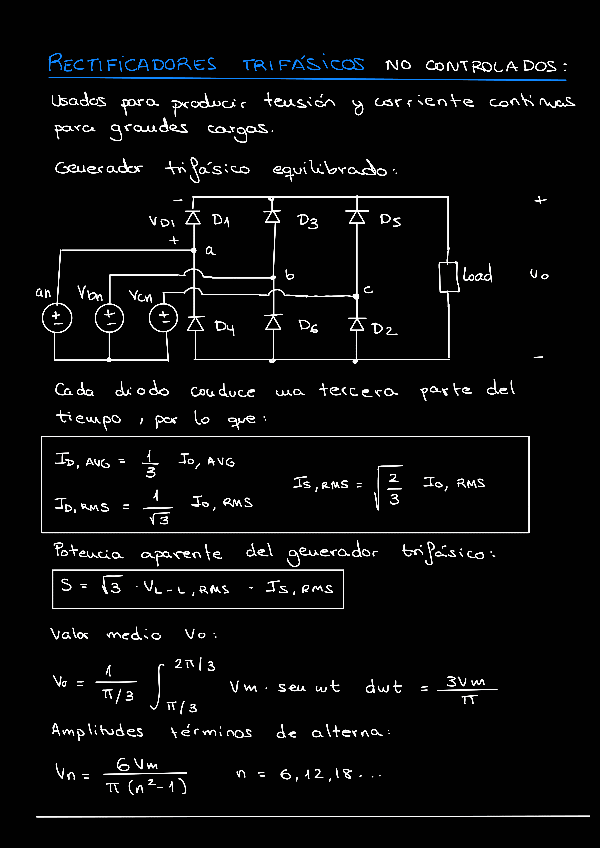 RECTIFICADORES TRIFÁSICOS NO CONTROLADOS:
Usados para producir tensión y corriente continuas
para grandes cargas.
Generador trifásico equilibrado:
- +
VD1 D1 D3 D5
+
a
b Load Vo
an Vbn Vcn c
D4 D6 D2
-
Cada diodo conduce una tercera parte del
tiempo, por lo que:
ID, AVG = 1/3 IO, AVG
IS, RMS = √(2/3) IO, RMS
ID, RMS = 1/√3 IO, RMS
Potencia aparente del generador trifásico:
S = √3 · VL-L, RMS · IS, RMS
Valor medio Vo:
Vo = 1/(π/3) ∫_{π/3}^{2π/3} Vm · sen wt dwt = 3Vm/π
Amplitudes términos de alterna:
Vn = 6Vm/(π(n²-1)) n = 6, 12, 18...